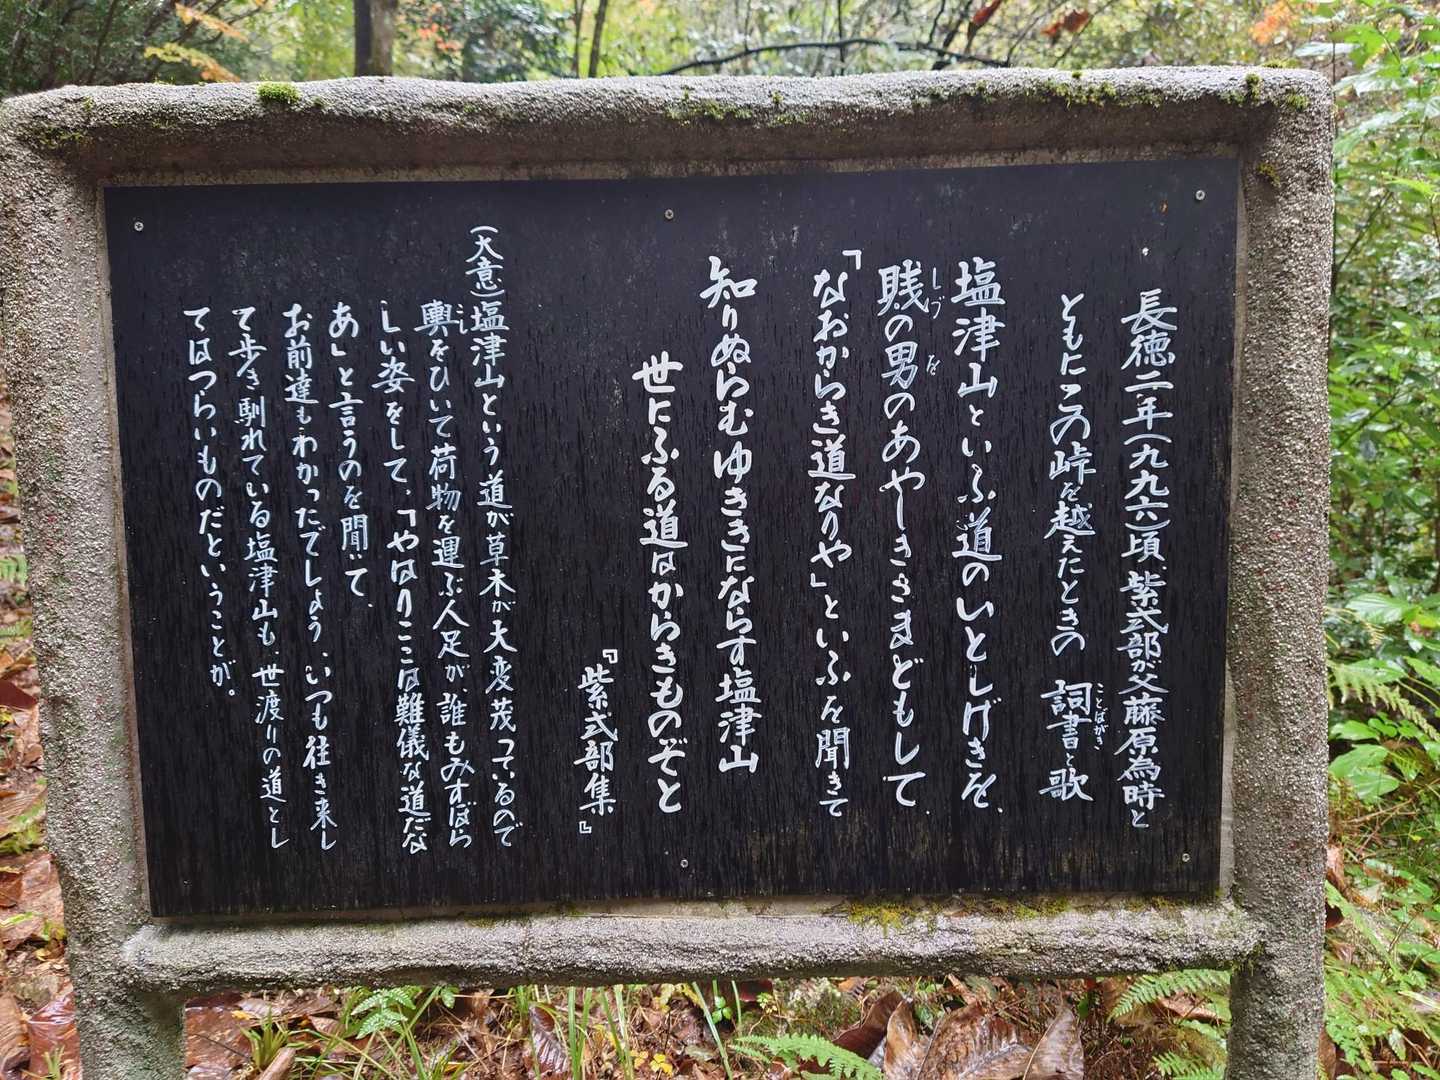 長徳二年(九九六)頃、紫式部が父藤原為時と
ともにこの峠を越えたときの 詞書と歌
ことばがき
塩津山といふ道のいとしげきを、
賤の男のあやしきさまどもして、
しづ を
「なおからき道なりや」といふを聞きて
知りぬらむゆききにならす塩津山
世にふる道はからきものぞと
『紫式部集』
(大意)塩津山という道が草木が大変茂っているので
輿をひいて荷物を運ぶ人足が、誰もみすぼら
こし
しい姿をして、「やはりここは難儀な道だな
あ」と言うのを聞いて、
お前達もわかったでしょう、いつも往き来し
て歩き馴れている塩津山も、世渡りの道とし
てはつらいものだということが。